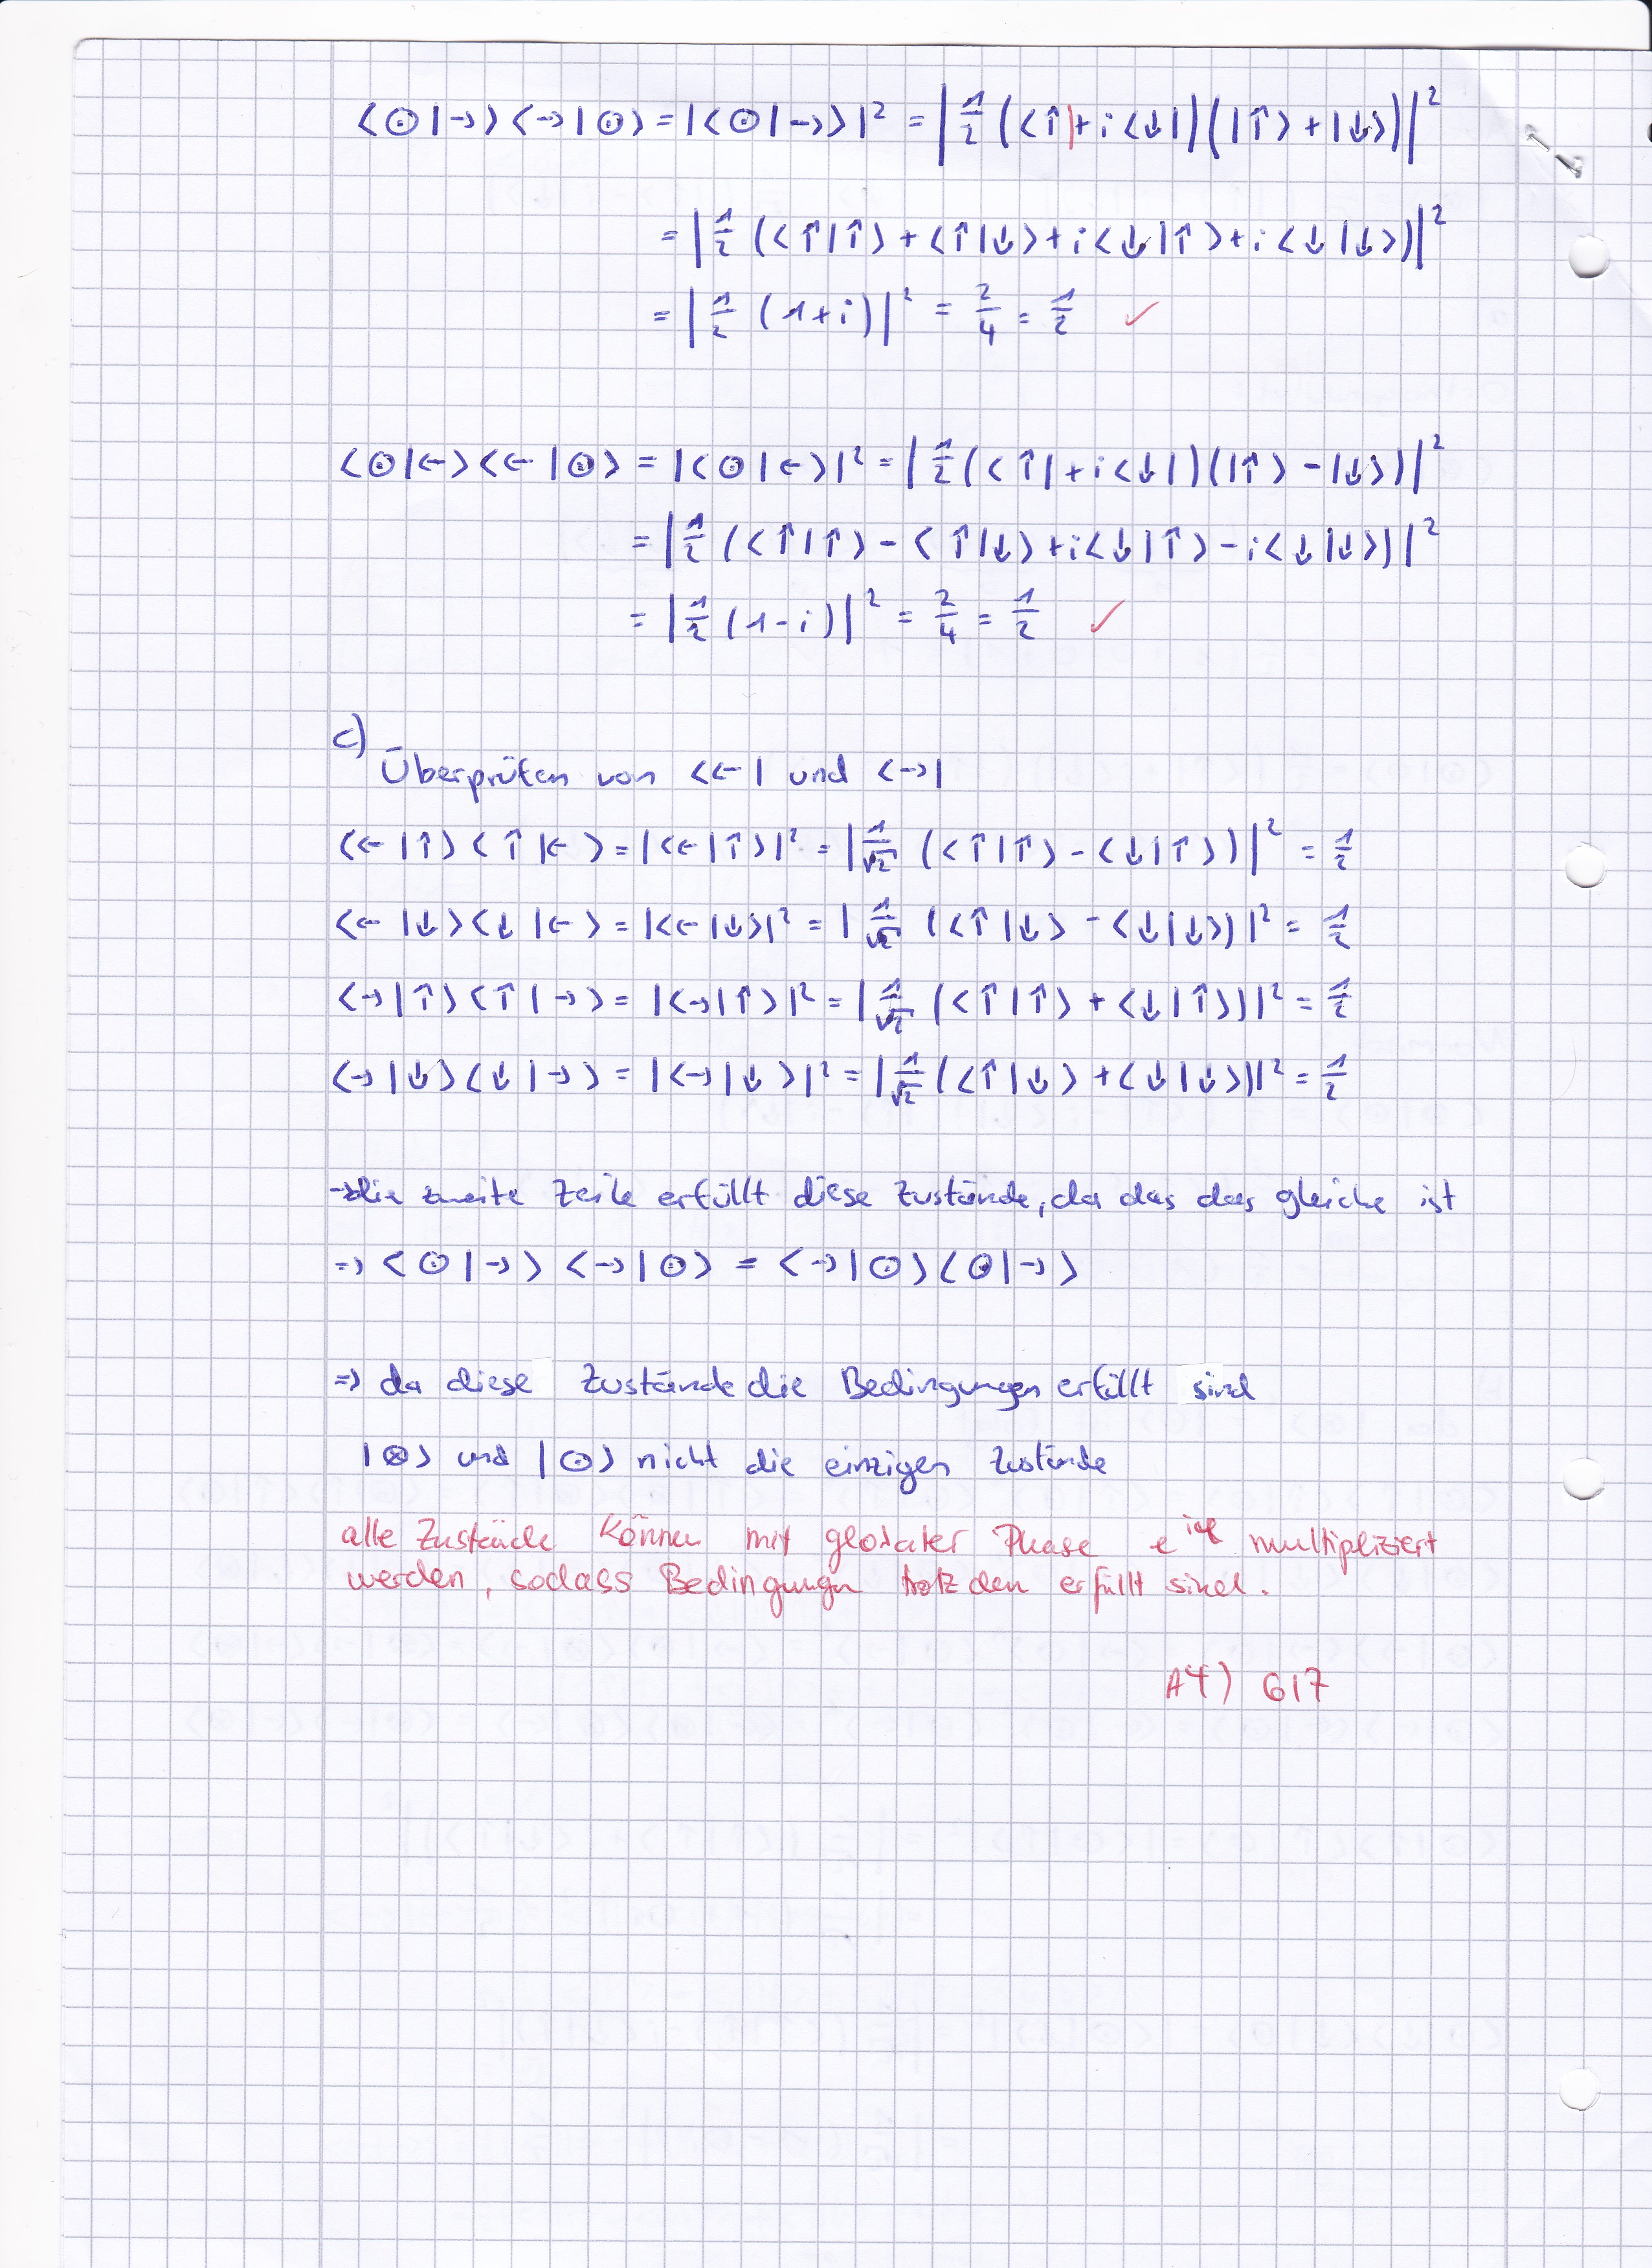 ⟨⊙|→⟩⟨→|⊙⟩ = |⟨⊙|→⟩|² = |1/2 (⟨↑|+i⟨↓|)(|↑⟩+|↓⟩)|²
= |1/2 (⟨↑|↑⟩+⟨↑|↓⟩+i⟨↓|↑⟩+i⟨↓|↓⟩)|²
= |1/2 (1+i)|² = 2/4 = 1/2 ✓
⟨⊙|←⟩⟨←|⊙⟩ = |⟨⊙|←⟩|² = |1/2 (⟨↑|+i⟨↓|)(|↑⟩-|↓⟩)|²
= |1/2 (⟨↑|↑⟩-⟨↑|↓⟩+i⟨↓|↑⟩-i⟨↓|↓⟩)|²
= |1/2 (1-i)|² = 2/4 = 1/2 ✓
c)
Überprüfen von ⟨←| und ⟨→|
⟨←|↑⟩⟨↑|←⟩ = |⟨←|↑⟩|² = |1/√2 (⟨↑|↑⟩-⟨↓|↑⟩)|² = 1/2
⟨←|↓⟩⟨↓|←⟩ = |⟨←|↓⟩|² = |1/√2 (⟨↑|↓⟩-⟨↓|↓⟩)|² = 1/2
⟨→|↑⟩⟨↑|→⟩ = |⟨→|↑⟩|² = |1/√2 (⟨↑|↑⟩+⟨↓|↑⟩)|² = 1/2
⟨→|↓⟩⟨↓|→⟩ = |⟨→|↓⟩|² = |1/√2 (⟨↑|↓⟩+⟨↓|↓⟩)|² = 1/2
→die zweite Zeile erfüllt diese Zustände, da das das gleiche ist
⇒ ⟨⊙|→⟩⟨→|⊙⟩ = ⟨→|⊙⟩⟨⊙|→⟩
⇒ da diese Zustände die Bedingungen erfüllt sind
|⊗⟩ und |⊙⟩ nicht die einzigen Zustände
alle Zustände können mit globaler Phase e^iφ multipliziert
werden, sodass Bedingungn trotzden erfüllt sind.
A4) 6/7